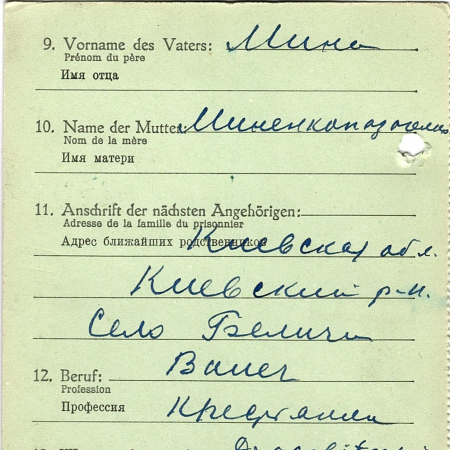 9. Vorname des Vaters: Мина
Prénom du père
Имя отца
10. Name der Mutter:
Nom de la mère
Имя матери
11. Anschrift der nächsten Angehörigen:
Adresse de la famille du prisonnier
Адрес ближайших родственников
Киевская обл.
Киевский р-н.
Село Беличи
12. Beruf:
Profession
Профессия